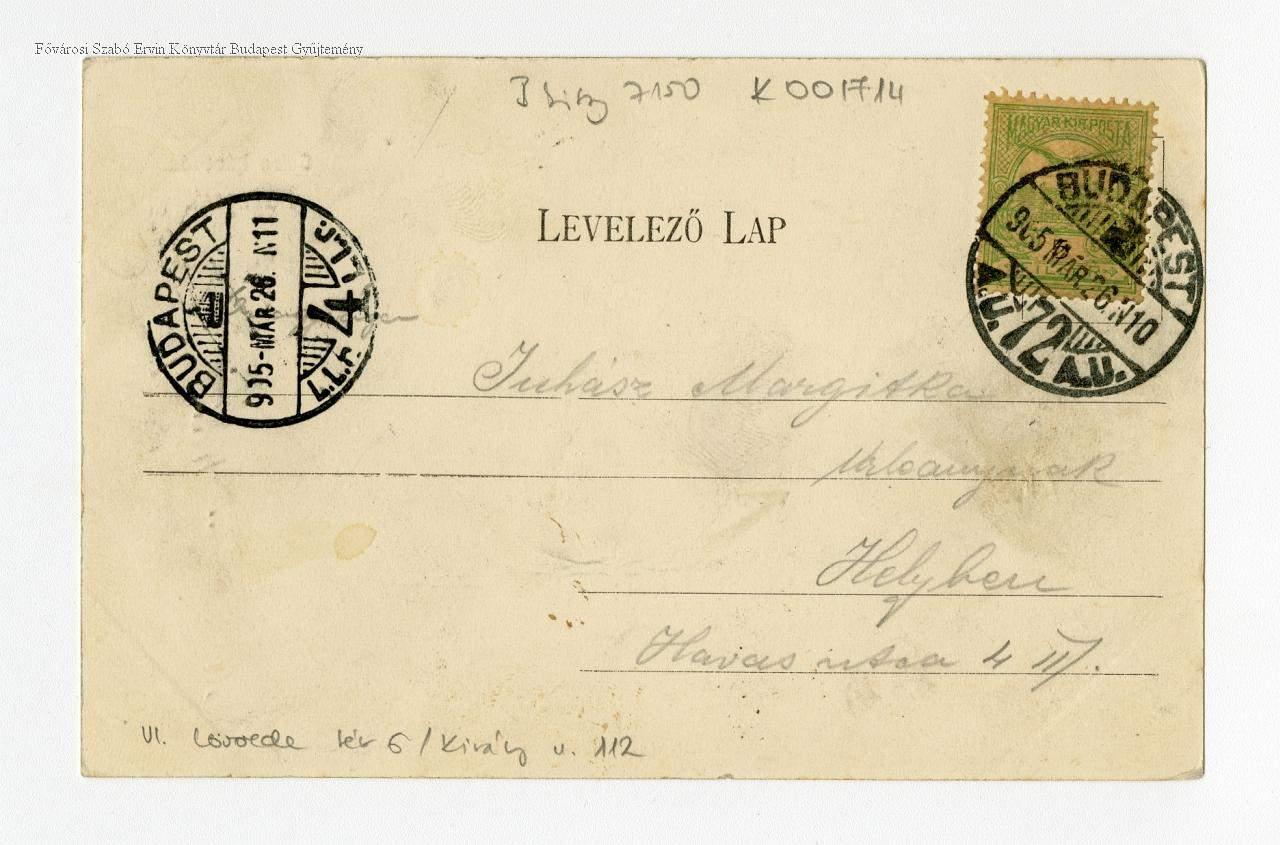 Fővárosi Szabó Ervin Könyvtár Budapest Gyűjtemény
7150 K 001714
MAGYAR KIR. POSTA
BUDAPEST
905 MÁR 26. N10
A.U. 72 A.U.
LEVELEZŐ LAP
BUDAPEST
905 MÁR 26. N11
4
Juhász Margitka
Helyben
Havas utca 4 III.
VI. Lövölde tér 6 / Király u. 112